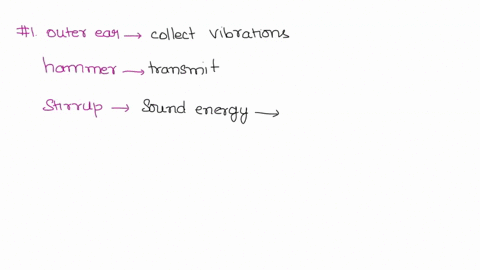 #1. outer ear → collect vibrations
hammer → transmit
Stirrup → Sound energy →